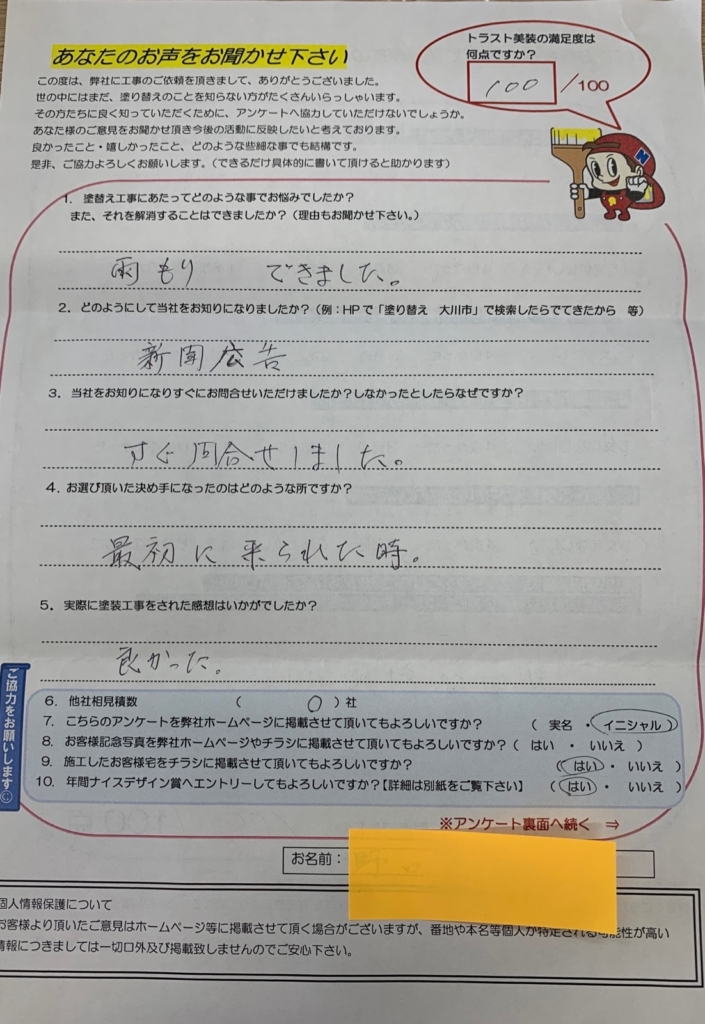 あなたのお声をお聞かせ下さい
トラスト美装の満足度は
何点ですか？
100 /100
この度は、弊社に工事のご依頼を頂きまして、ありがとうございました。
世の中にはまだ、塗り替えのことを知らない方がたくさんいらっしゃいます。
その方たちに良く知っていただくために、アンケートへ協力していただけないでしょうか。
あなた様のご意見をお聞かせ頂き今後の活動に反映したいと考えております。
良かったこと・嬉しかったこと、どのような些細な事でも結構です。
是非、ご協力よろしくお願いします。（できるだけ具体的に書いて頂けると助かります）
N
1. 塗替え工事にあたってどのような事でお悩みでしたか？
また、それを解消することはできましたか？（理由もお聞かせ下さい。）
雨もり できました。
2. どのようにして当社をお知りになりましたか？（例：HPで「塗り替え 大川市」で検索したらでてきたから 等）
新聞広告
3. 当社をお知りになりすぐにお問合せいただけましたか？しなかったとしたらなぜですか？
すぐ問合せしました。
4. お選び頂いた決め手になったのはどのような所ですか？
最初に来られた時。
5. 実際に塗装工事をされた感想はいかがでしたか？
良かった。
ご協力をお願いします
6. 他社相見積数 （ 0 ）社
7. こちらのアンケートを弊社ホームページに掲載させて頂いてもよろしいですか？ （ 実名 ・ イニシャル ）
8. お客様記念写真を弊社ホームページやチラシに掲載させて頂いてもよろしいですか？（ はい ・ いいえ ）
9. 施工したお客様宅をチラシに掲載させて頂いてもよろしいですか？ （ はい ・ いいえ ）
10. 年間ナイスデザイン賞へエントリーしてもよろしいですか？【詳細は別紙をご覧下さい】 （ はい ・ いいえ ）
※アンケート裏面へ続く ⇒
お名前：
個人情報保護について
お客様より頂いたご意見はホームページ等に掲載させて頂く場合がございますが、番地や本名等個人が特定される可能性が高い
情報につきましては一切口外及び掲載致しませんのでご安心下さい。